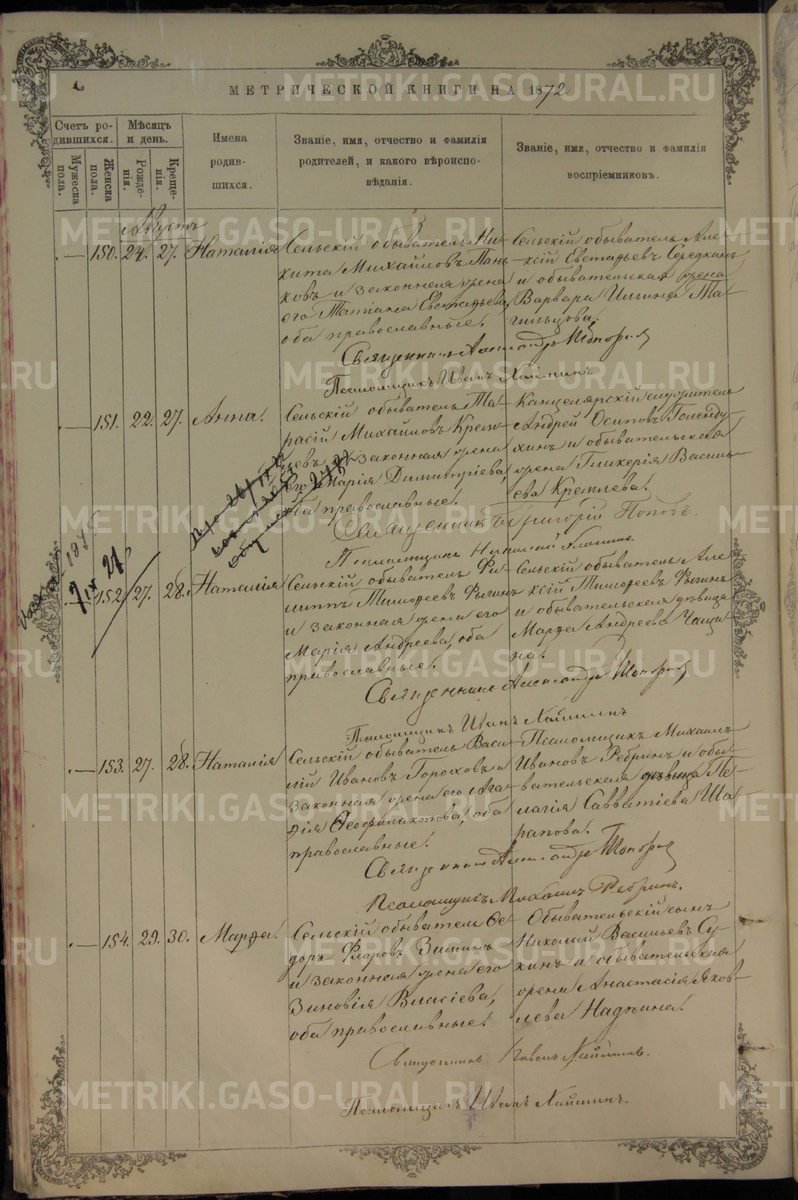 МЕТРИЧЕСКОЙ КНИГИ НА 1872
Счетъ ро-
дившихся.
Мужеска
пола.
Женска
пола.
Мѣсяцъ
и день.
Рожде-
нія.
Креще-
нія.
Имена
родив-
шихся.
Званіе, имя, отчество и фамилія
родителей, и какого вѣроиспо-
вѣданія.
Званіе, имя, отчество и фамилія
воспріемниковъ.
Августъ
150. 24. 27. Наталія
Сельскій обыватель Ни-
кита Михайловъ Пан-
ковъ и законная жена
его Татіана Евстафьева,
оба православные.
Сельскій обыватель Але-
ксій Евстафьевъ Середкинъ
и обывательская жена
Варвара Ильина Та-
гильцова.
Священникъ Александръ Топорковъ
Псаломщикъ Иванъ Наймшинъ
151. 22. 27. Анна.
Сельскій обыватель Та-
расій Михайловъ Крем-
левъ и законная жена
его Марія Димитріева,
оба православные.
Канцелярскій служитель
Андрей Осиповъ Голенду-
хинъ и обывательская
жена Гликерія Василь-
ева Кремлева.
Священникъ Григорій Поповъ.
Псаломщикъ Николай
152. 27. 28. Наталія
Сельскій обыватель Фи-
липпъ Тимофеевъ Фигинъ
и законная жена его
Марія Андреева, оба
православные.
Сельскій обыватель Але-
ксій Тимофеевъ Фигинъ
и обывательская дѣвица
Марфа Андреева Чащи-
на.
Священникъ Александръ Топорковъ
Псаломщикъ Иванъ Наймшинъ
153. 27. 28. Наталія
Сельскій обыватель Васи-
лій Ивановъ Гороховъ и
законная жена его
Ѳеофилактова, оба
православные.
Псаломщикъ Михаилъ
Ивановъ Ребринъ и обы-
вательская дѣвица Пе-
лагія Савватіева Ша-
рапова.
Священникъ Александръ Топорковъ
Псаломщикъ Михаилъ Ребринъ.
154. 29. 30. Марфа.
Сельскій обыватель Ѳе-
доръ Флоровъ Зиминъ
и законная жена его
Зиновія Власіева,
оба православные.
Обывательскій сынъ
Николай Васильевъ Су-
хинъ и обывательская
жена Анастасія Яков-
лева Надѣина.
Священникъ Павелъ
Псаломщикъ Иванъ Наймшинъ.
METRIKI.GASO-URAL.RU